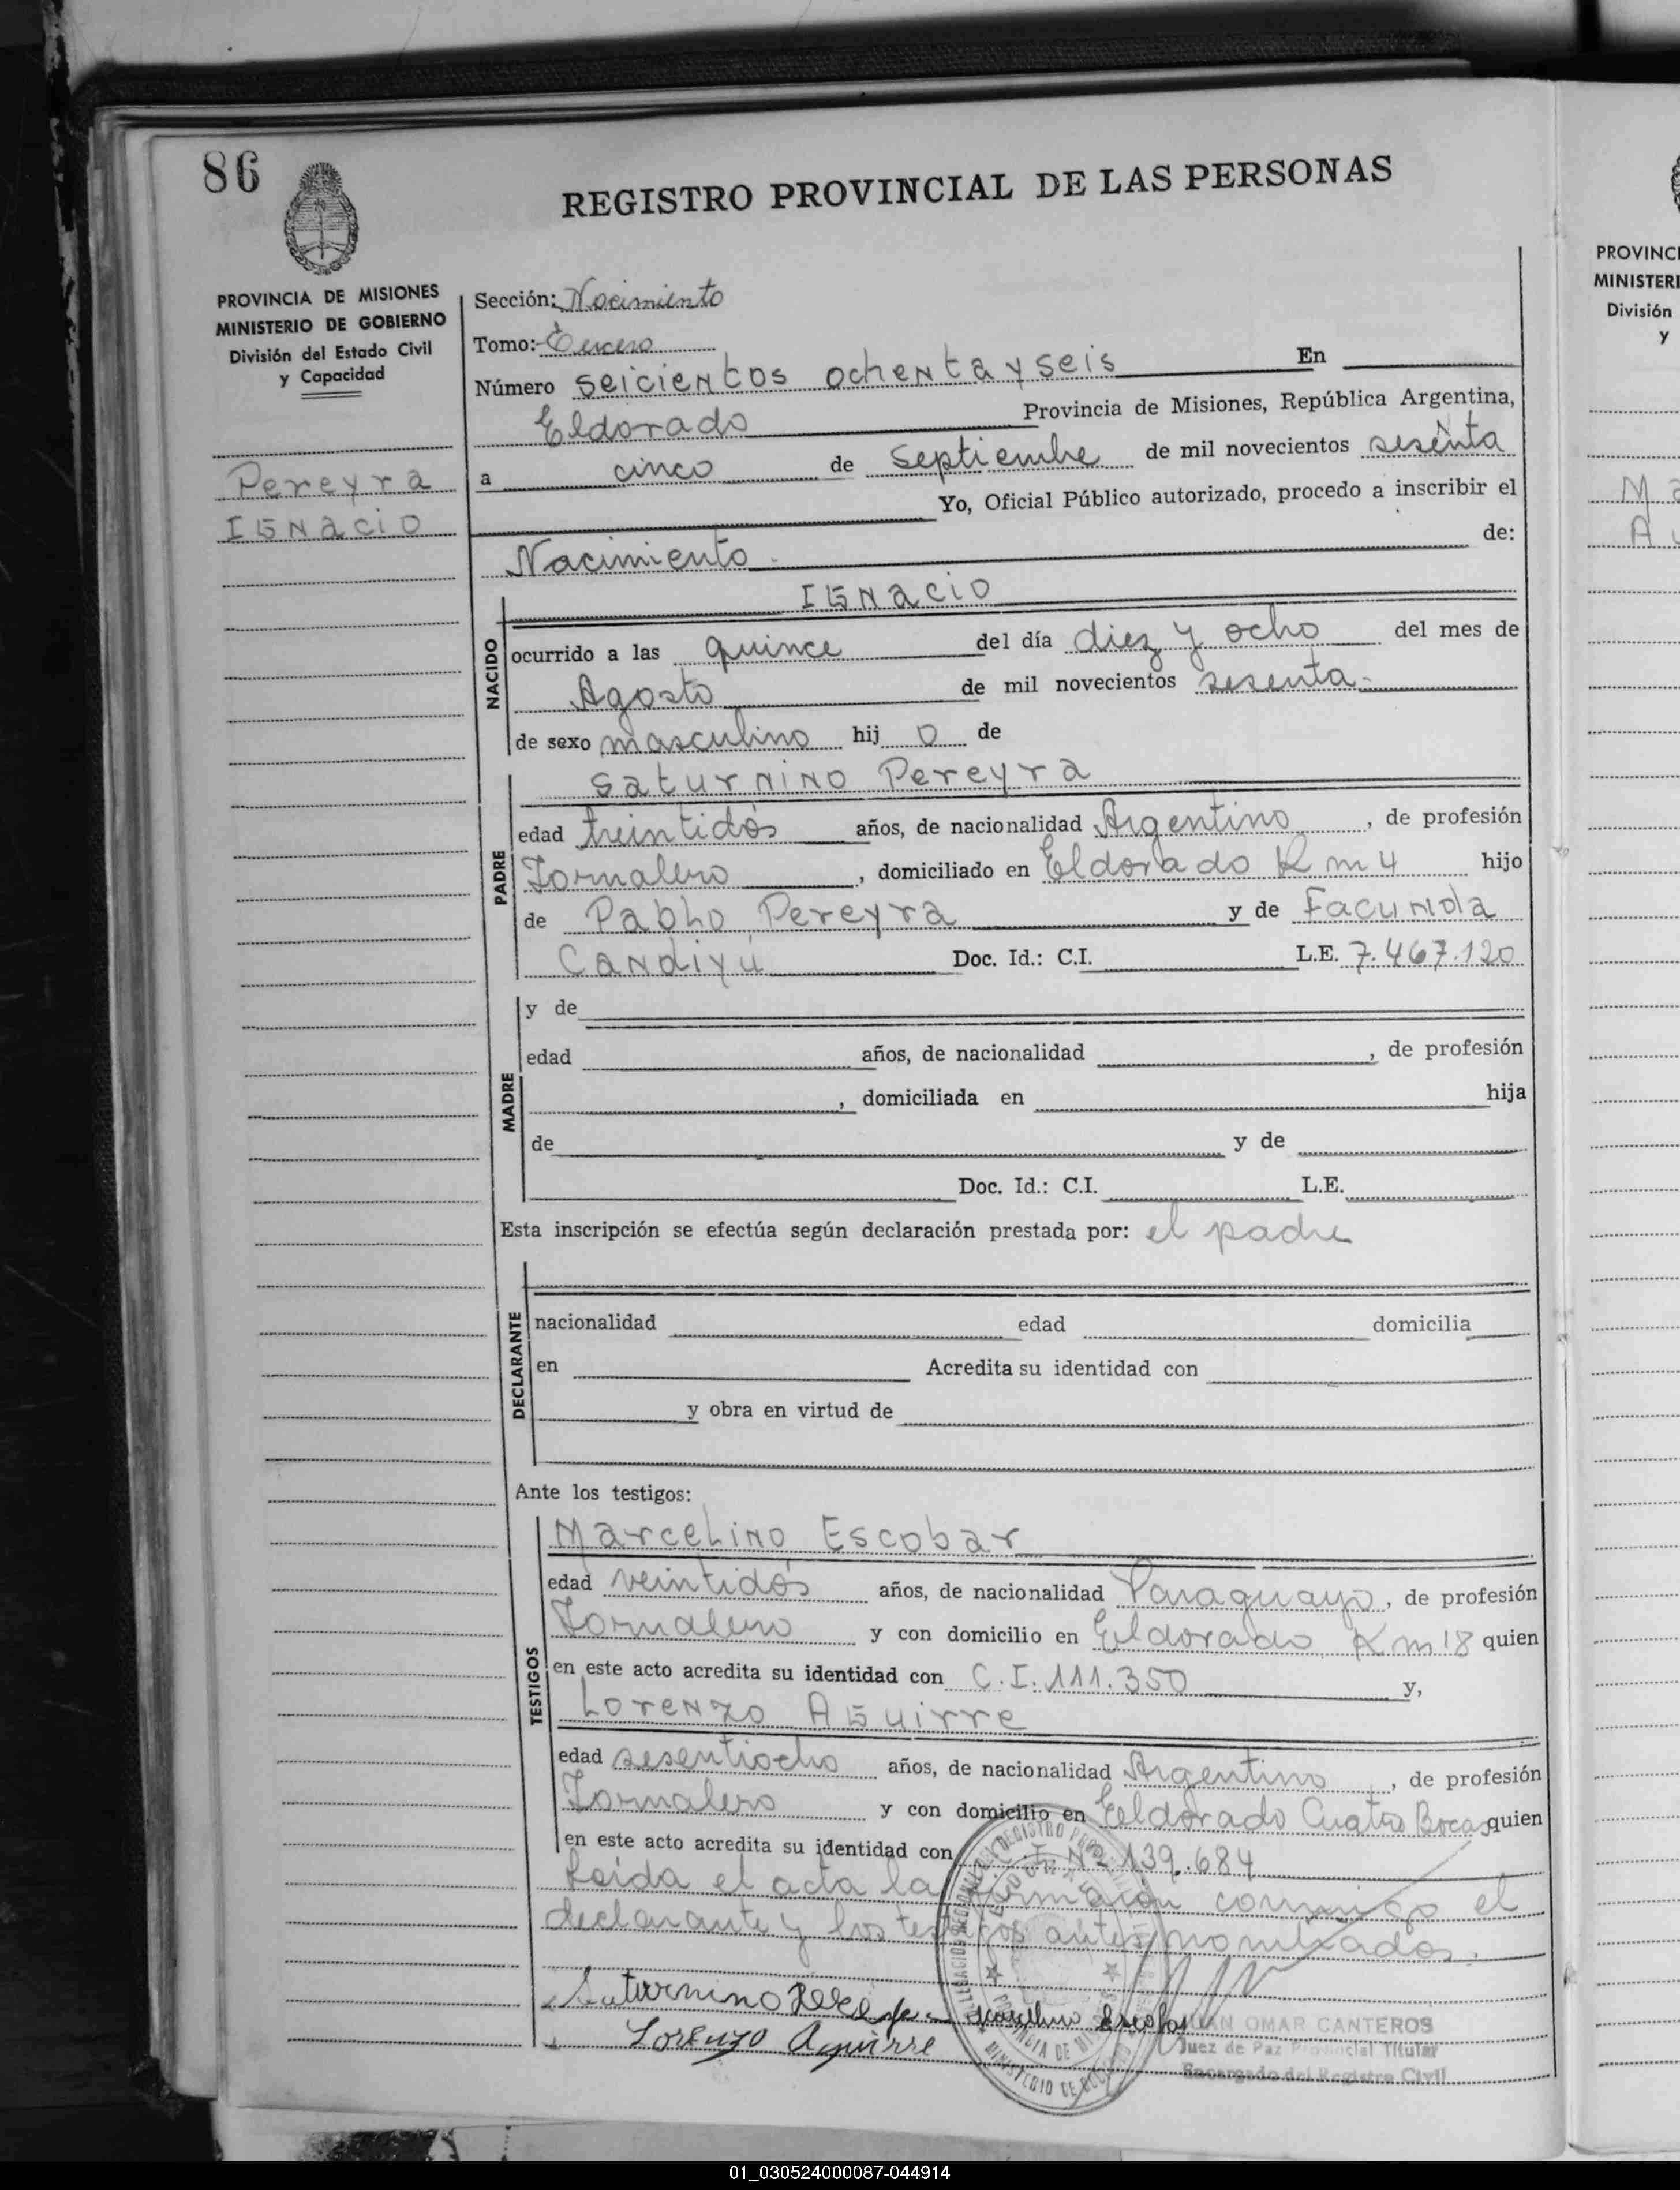 86
REGISTRO PROVINCIAL DE LAS PERSONAS
PROVINCIA DE MISIONES
MINISTERIO DE GOBIERNO
División del Estado Civil
y Capacidad
Pereyra
Ignacio
Sección: Nacimiento
Tomo: Tercero
Número seicientos ochenta y seis En
Eldorado Provincia de Misiones, República Argentina,
a cinco de Septiembre de mil novecientos sesenta
Yo, Oficial Público autorizado, procedo a inscribir el
Nacimiento de:
NACIDO
Ignacio
ocurrido a las quince del día diez y ocho del mes de
Agosto de mil novecientos sesenta
de sexo masculino hij o de
PADRE
Saturnino Pereyra
edad treintidós años, de nacionalidad Argentino, de profesión
Jornalero, domiciliado en Eldorado Km 4 hijo
de Pablo Pereyra y de Facunda
Candiyú Doc. Id.: C.I. L.E. 7.467.120
MADRE
y de
edad años, de nacionalidad , de profesión
, domiciliada en hija
de y de
Doc. Id.: C.I. L.E.
Esta inscripción se efectúa según declaración prestada por: el padre
DECLARANTE
nacionalidad edad domicilia
en Acredita su identidad con
y obra en virtud de
Ante los testigos:
TESTIGOS
Marcelino Escobar
edad veintidós años, de nacionalidad Paraguayo, de profesión
Jornalero y con domicilio en Eldorado Km 18 quien
en este acto acredita su identidad con C.I. 111.350 y,
Lorenzo Aguirre
edad sesentiocho años, de nacionalidad Argentino, de profesión
Jornalero y con domicilio en Eeldorado Cuatro Bocas quien
en este acto acredita su identidad con C.I. Nº 139.684
Leída el acta la firman conmigo el
declarante y los testigos antes nombrados.
Saturnino Pereyra Marcelino Escobar
Lorenzo Aguirre
JUAN OMAR CANTEROS
Juez de Paz Provincial Titular
Encargado del Registro Civil
PROVINCI
MINISTERI
División
y
Ma
A
01_030524000087-044914